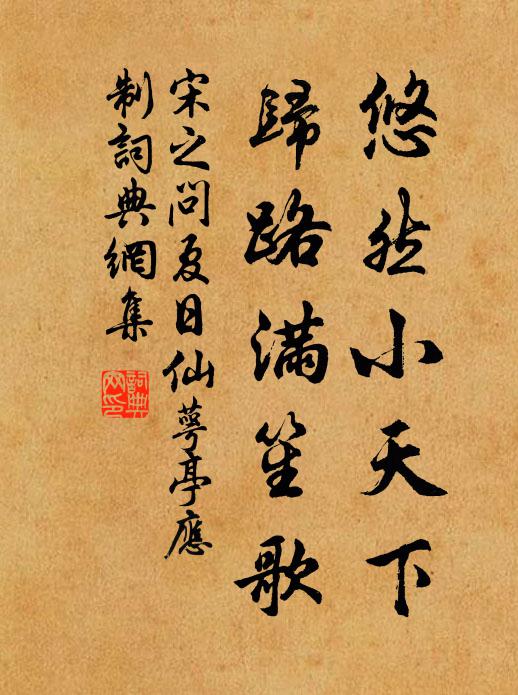 悠然小天下
歸路滿笙歌
宋之問夏日仙萼亭應
制詞典網集
詞典網印